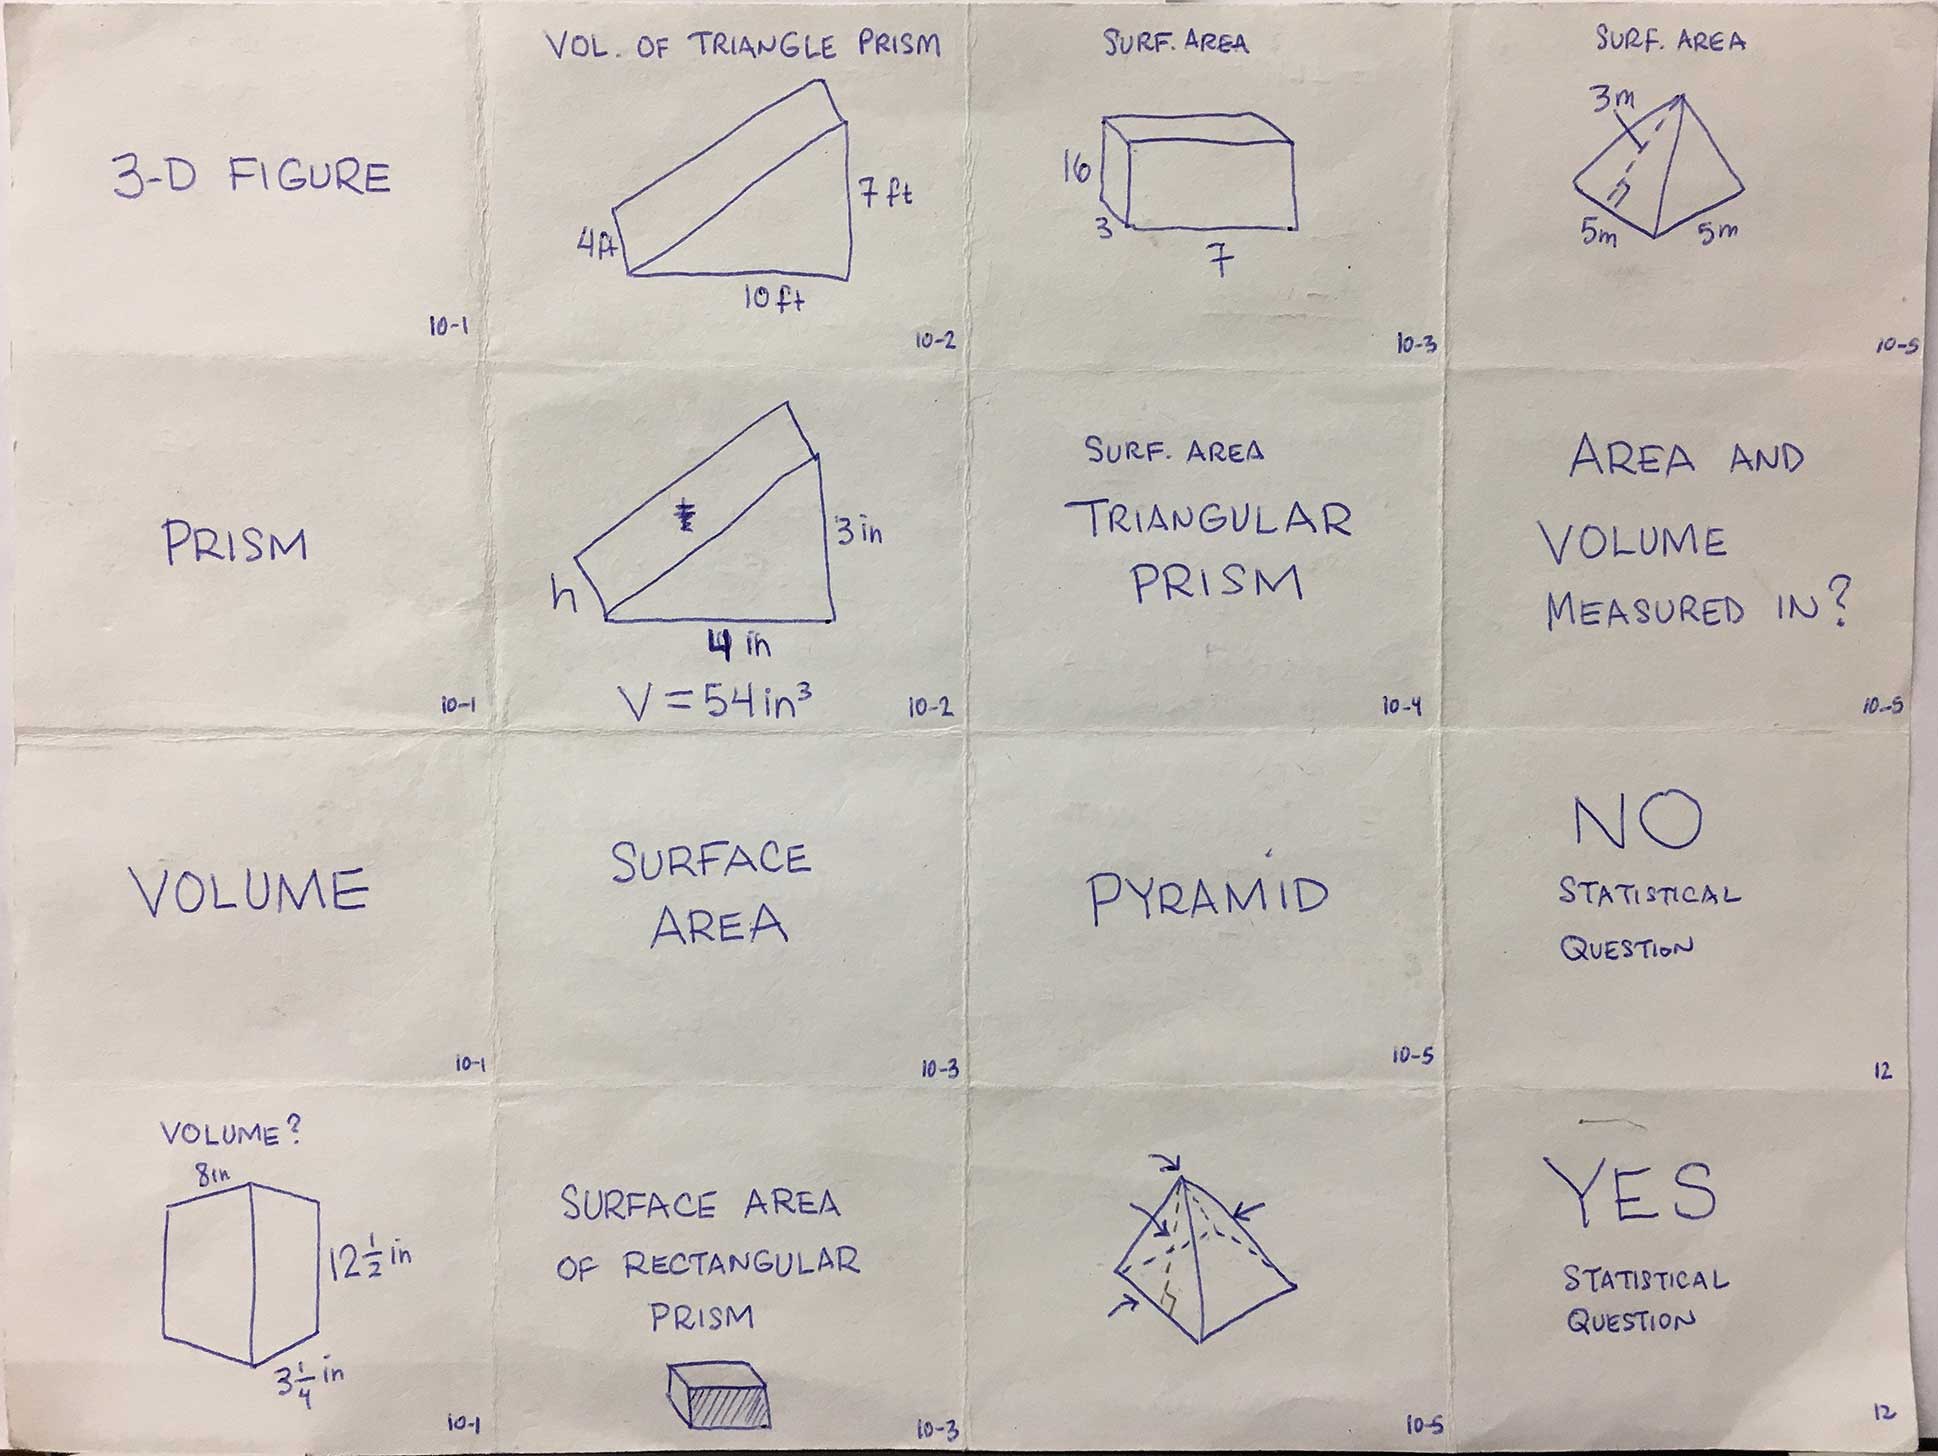 3-D FIGURE
10-1
VOL. OF TRIANGLE PRISM
7 ft
4ft
10 ft
10-2
SURF. AREA
16
3
7
10-3
SURF. AREA
3m
5m
5m
10-5
PRISM
10-1
3 in
h
4 in
V = 54 in³
10-2
SURF. AREA
TRIANGULAR
PRISM
10-4
AREA AND
VOLUME
MEASURED IN?
10-5
VOLUME
10-1
SURFACE
AREA
10-3
PYRAMID
10-5
NO
STATISTICAL
QUESTION
12
VOLUME?
8in
12 1/2 in
3 1/4 in
10-1
SURFACE AREA
OF RECTANGULAR
PRISM
10-3
10-5
YES
STATISTICAL
QUESTION
12